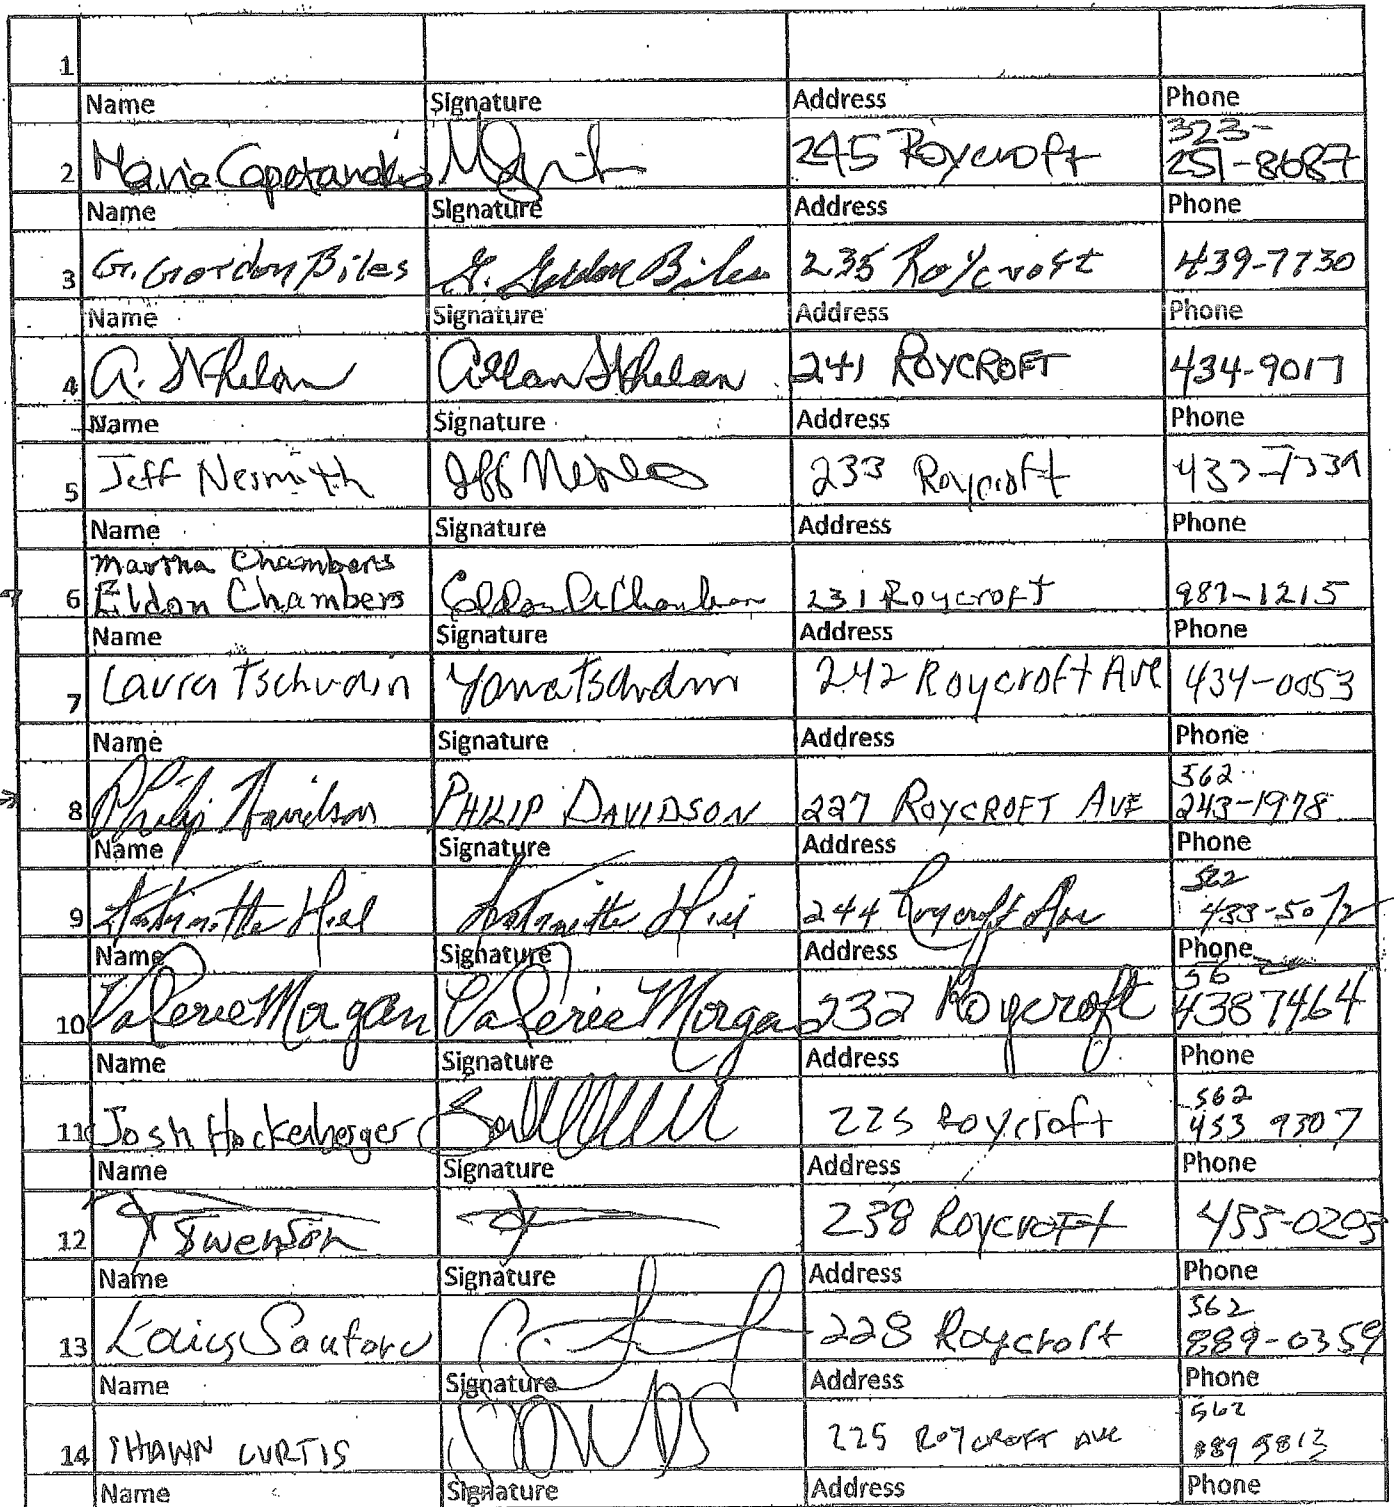 1
Name Signature Address Phone
323-
2 Maria Capetanakis 245 Roycroft 251-8687
Name Signature Address Phone
3 G. Gordon Biles G. Gordon Biles 235 Roycroft 439-7730
Name Signature Address Phone
4 A. Whelan Allan Whelan 241 ROYCROFT 434-9017
Name Signature Address Phone
5 Jeff Nesmith Jeff 233 Roycroft
Name Signature Address Phone
Martha Chambers
6 Eldon Chambers 231 Roycroft 987-1215
Name Signature Address Phone
7 Laura Tschudin 242 Roycroft Ave 434-0053
Name Signature Address Phone
562
8 Philip Davidson PHILIP DAVIDSON 227 ROYCROFT AVE 243-1978
Name Signature Address Phone
562
9 Antoinette Hill Antoinette Hill 244 Roycroft Ave 433-5072
Name Signature Address Phone
56
10 Valerie Morgan Valerie Morgan 232 Roycroft 4387464
Name Signature Address Phone
562
11 Josh Hockenberger 225 Roycroft 453 9307
Name Signature Address Phone
12 Swenson 238 Roycroft 455-0203
Name Signature Address Phone
562
13 228 Roycroft 889-0359
Name Signature Address Phone
562
14 SHAWN CURTIS 225 ROYCROFT AVE 889 5813
Name Signature Address Phone